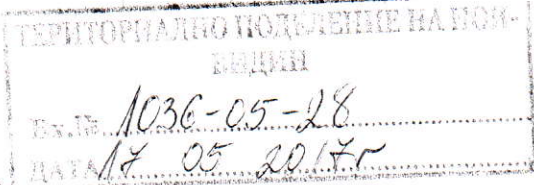 ТЕРИТОРИАЛНО ПОДЕЛЕНИЕ НА НОИ-
ВИДИН
Вх.№ 1036-05-28
ДАТА 17 05 2017г